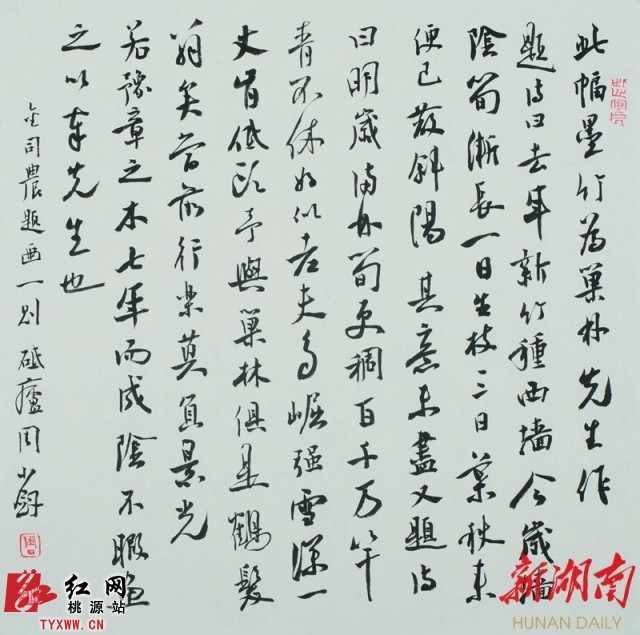 此幅墨竹为巢林先生作
题诗曰去年新竹种西墙今岁墙
阴笋渐长一日生枝三日叶秋来
便已蔽斜阳其意未尽又题诗
曰明岁满林笋更稠百千万竿
青不休好似老夫多崛强雪深一
丈肯低头予与巢林俱是鹤发
翁矣尊前行乐莫负景光
若豫章之木七年而成阴不暇画
之以奉先生也
金司农题画一则 砥瘘周小舒
红网
桃源站
TYXWW.CN
新湖南
HUNAN DAILY